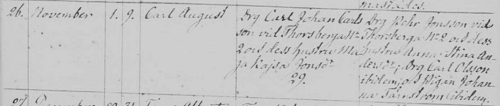 26. November 1. 9. Carl August
Drg Carl Johan Carls
son vid Thorsberga No
2 och dess hustru Ma
ja Kajsa Jonsdr
29.
Drg Pehr Jonsson vid
Thorsberga No 2 och dess
hustru Anna Stina An
dersdr; Drg Carl Olsson
ibidem och Pigan Johan
na ibidem